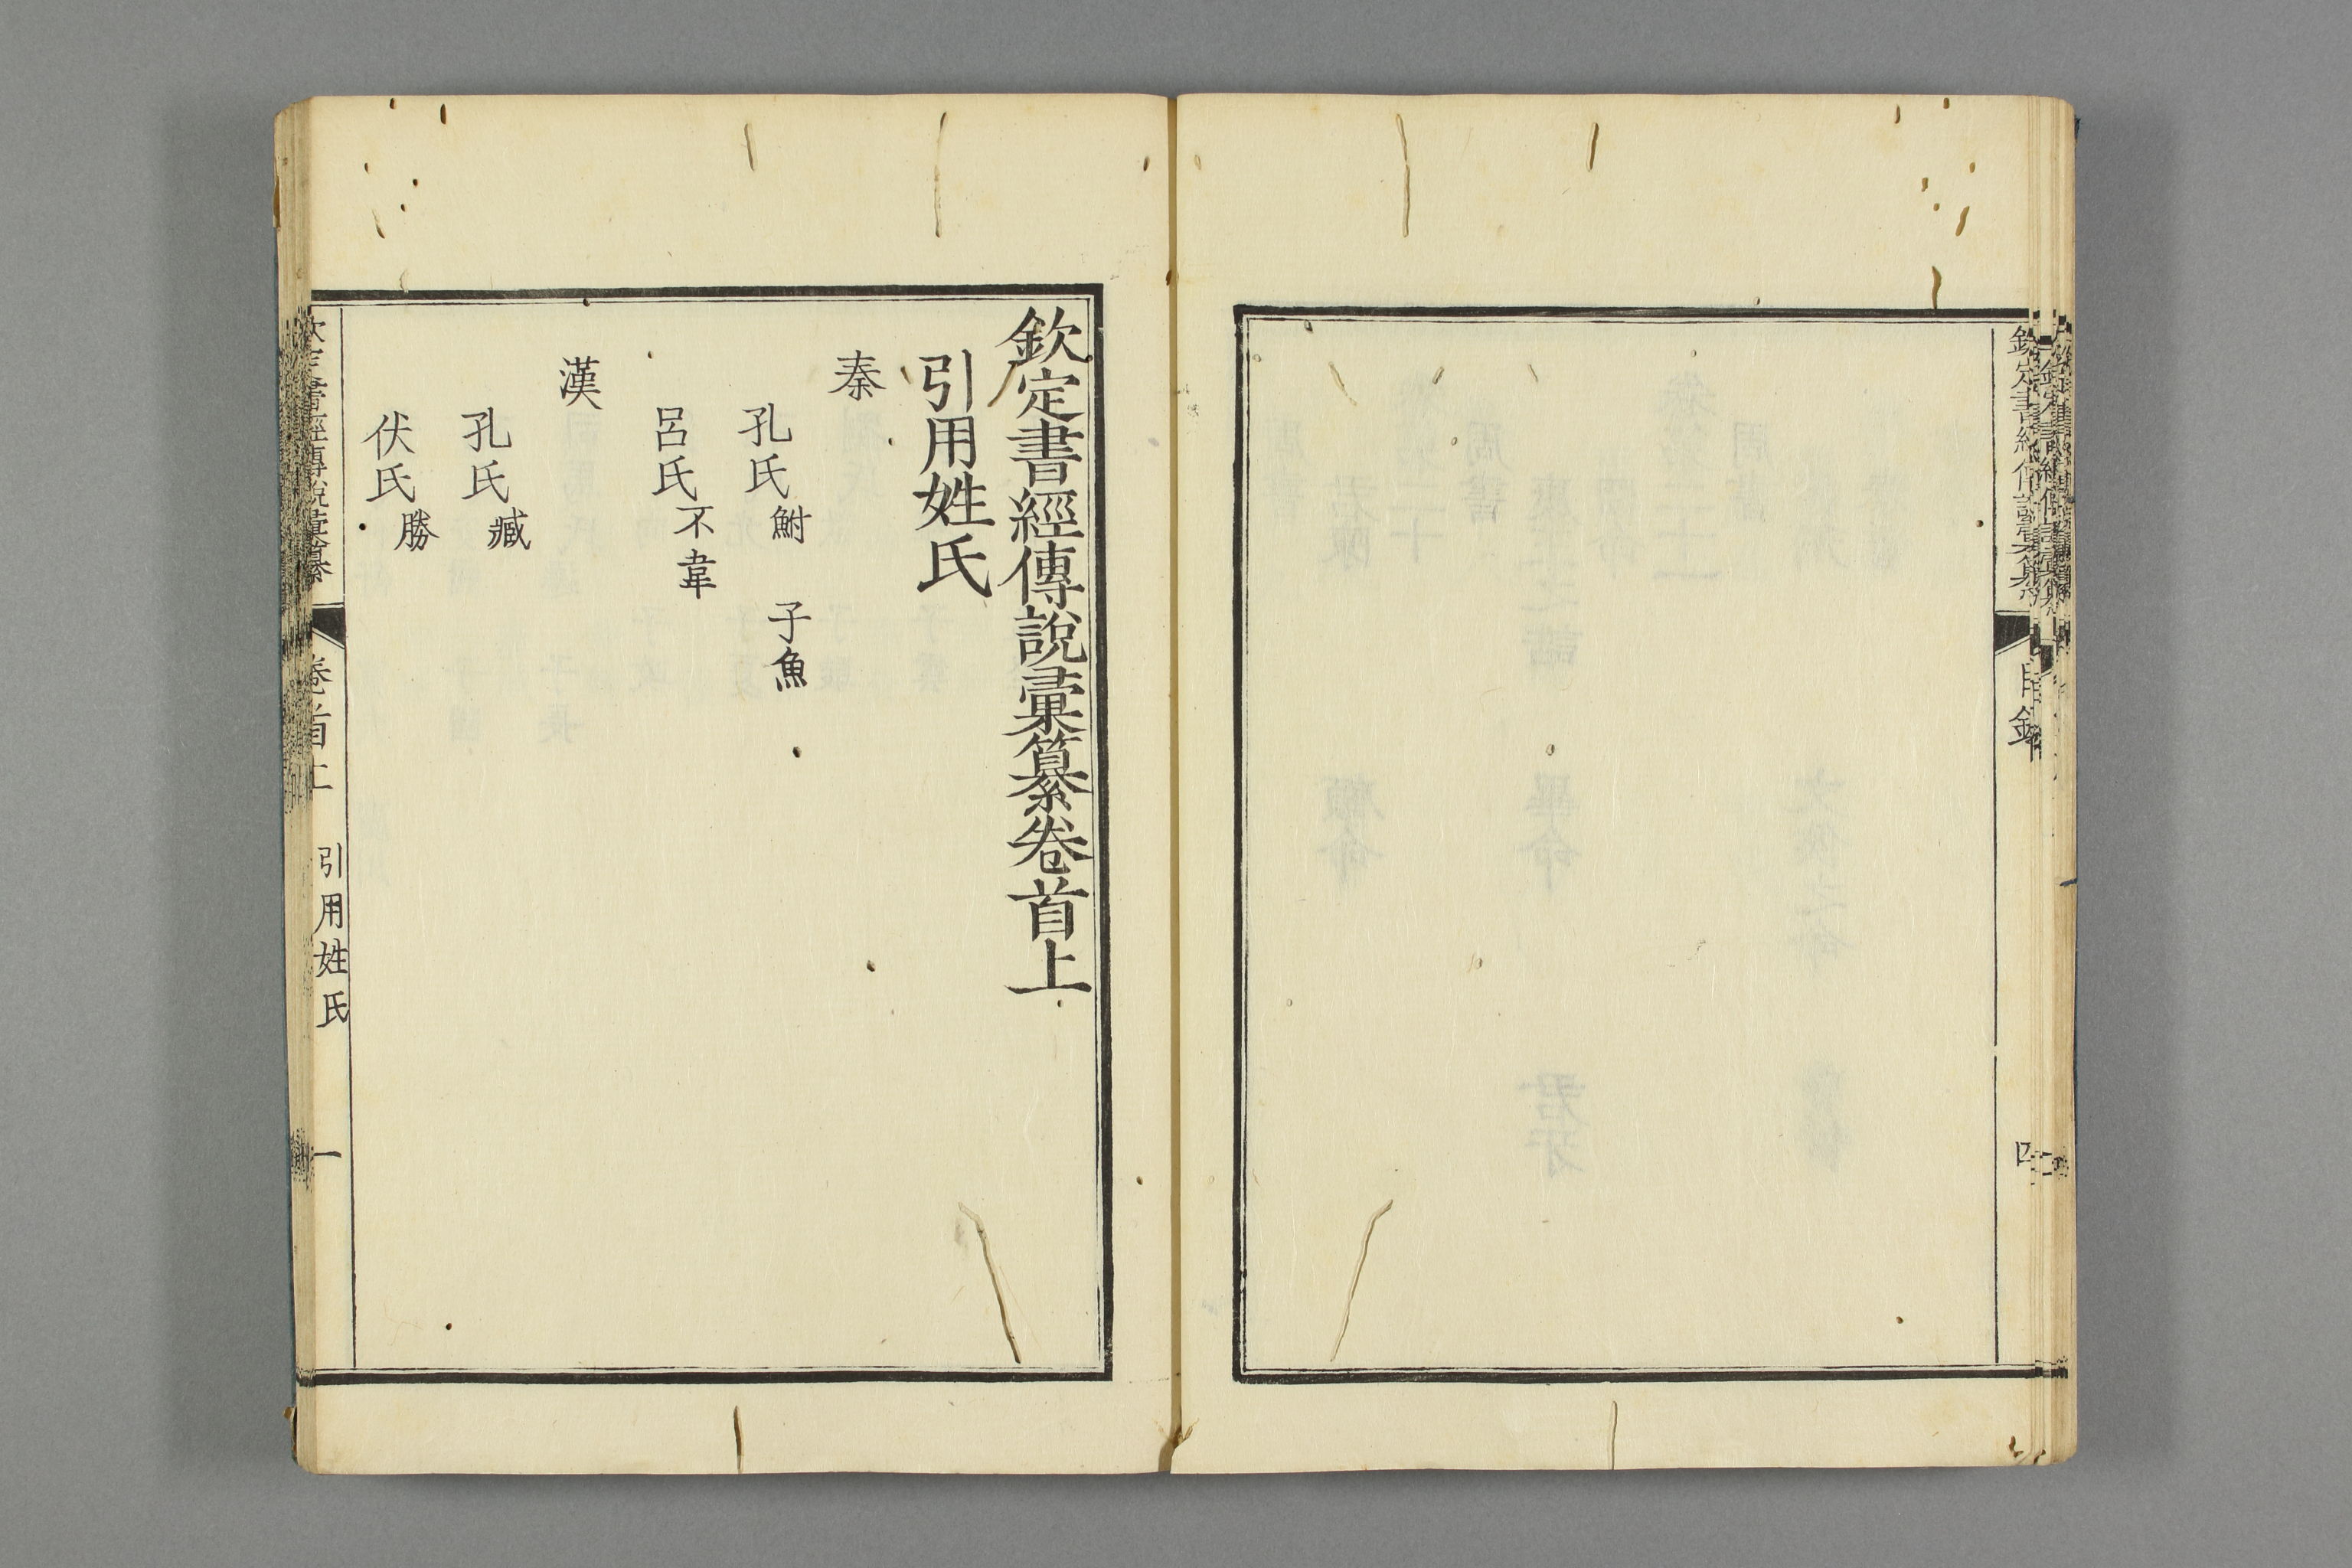 欽定書經傳說彙纂
目錄
四
欽定書經傳說彙纂卷首上
引用姓氏
秦
孔氏鮒 子魚
呂氏不韋
漢
孔氏臧
伏氏勝
欽定書經傳說彙纂
卷首上
引用姓氏
一